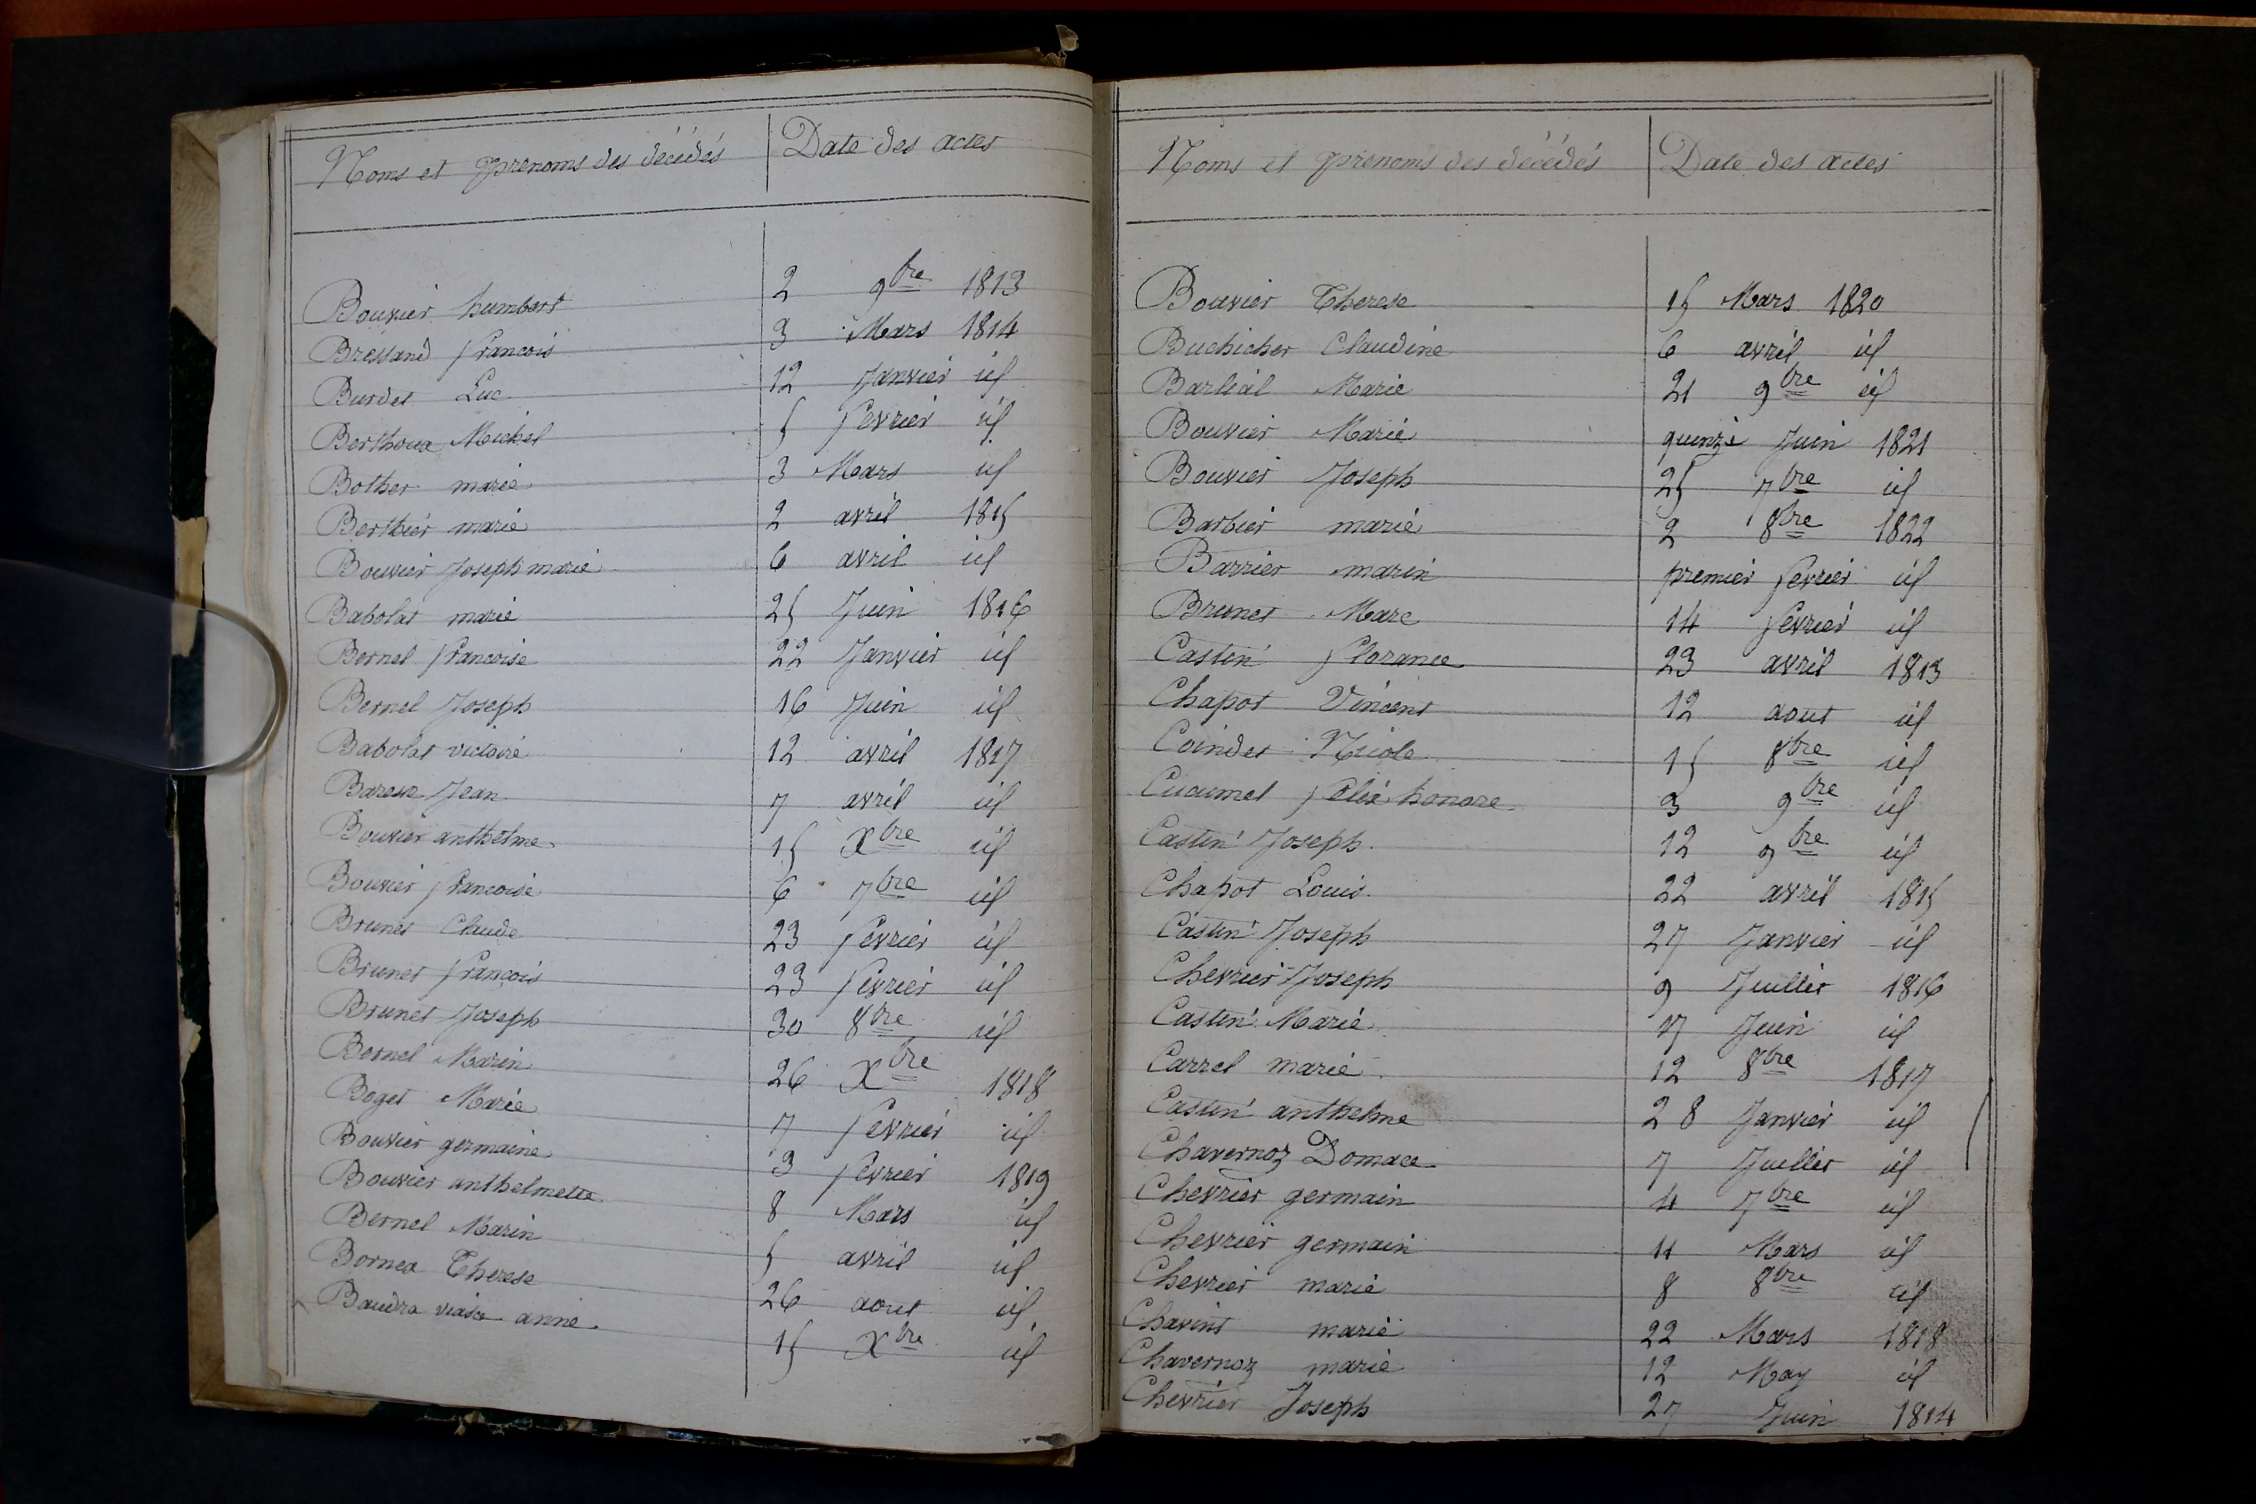 Noms et prenoms des décédés Date des actes
Bouvier humbert 2 9bre 1813
Bressand francois 3 Mars 1814
Burdet Luc 12 Janvier id
Berthoux Michel 5 fevrier id
Bother marie 3 Mars id
Berthier marie 2 avril 1815
Bouvier Joseph marie 6 avril id
Babolat marie 25 Juin 1816
Bernel francoise 22 Janvier id
Bernel Joseph 16 Juin id
Babolat victoire 12 avril 1817
Bareux Jean 7 avril id
Bouvier anthelme 15 Xbre id
Bouvier francoise 6 7bre id
Brunet Claude 23 fevrier id
Brunet francois 23 fevrier id
Brunet Joseph 30 8bre id
Bernel Marin 26 Xbre 1818
Boget Marie 7 fevrier id
Bouvier germaine 3 fevrier 1819
Bouvier anthelmette 8 Mars id
Bernel Marin 5 avril id
Bornea Therese 26 aout id
Baudra anne 15 Xbre id
Noms et prenoms des décédés Date des actes
Bouvier Therese 15 Mars 1820
Buchicher Claudine 6 avril id
Barlial Marie 21 9bre id
Bouvier Marie quinze Juin 1821
Bouvier Joseph 25 7bre id
Barbier marie 2 8bre 1822
Barrier marin premier fevrier id
Brunet Marc 14 fevrier id
Castin florance 23 avril 1813
Chapot Vincent 12 aout id
Coindet Nicole 15 8bre id
Cucumel felix honore 3 9bre id
Castin Joseph 12 9bre id
Chapot Louis 22 avril 1815
Castin Joseph 27 Janvier id
Chevrier Joseph 9 Juillet 1816
Castin Marie 17 Juin id
Carrel marie 12 8bre 1817
Castin anthelme 28 Janvier id
Chavernoz Domace 7 Juillet id
Chevrier germain 4 7bre id
Chevrier germain 11 Mars id
Chevrier marie 8 8bre id
Chavint marie 22 Mars 1818
Chavernoz marie 12 May id
Chevrier Joseph 27 Juin 1814